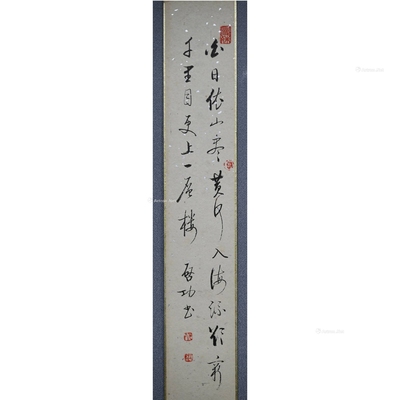 白日依山尽黄河入海流欲穷
千里目更上一层楼
启功书